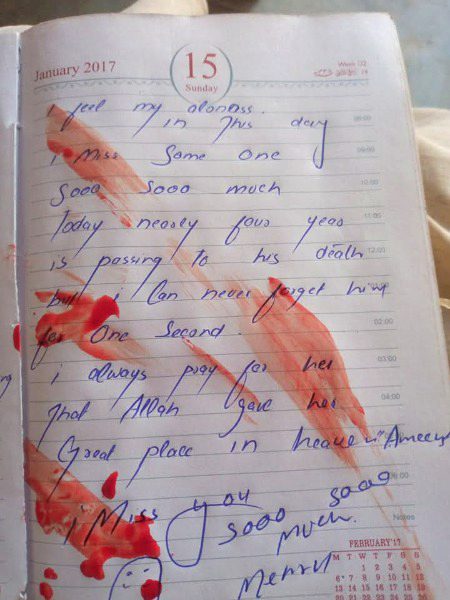 January 2017
15
Sunday
Week 02
i feel my alonness.
in This day
08:00
i Miss Some One
09:00
Sooo Sooo much
10:00
Today nearly four year
11:00
is passing to his death
12:00
but i Can never forget him
for One Second.
02:00
i always pray for her
03:00
That Allah gave her
04:00
Great place in heaven "Ameen
06:00
i Miss you sooo sooo
Notes
Much.
FEBRUARY'17
M T W T F S S
1 2 3 4 5
6 7 8 9 10 11 12
13 14 15 16 17 18 19